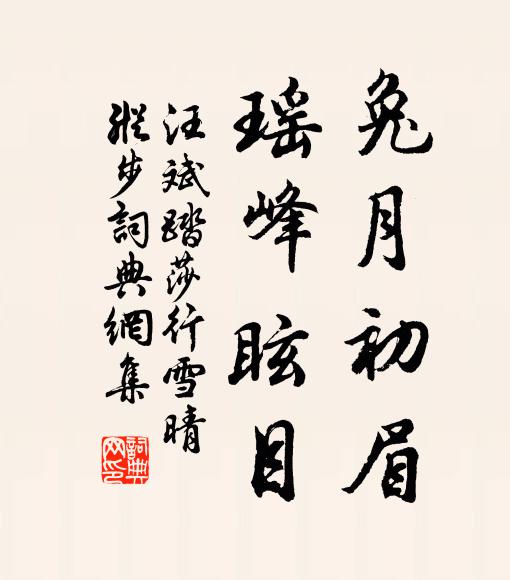 兔月初眉
瑶峰眩目
汪斌踏莎行雪晴
縱步詞典網集
詞典网印